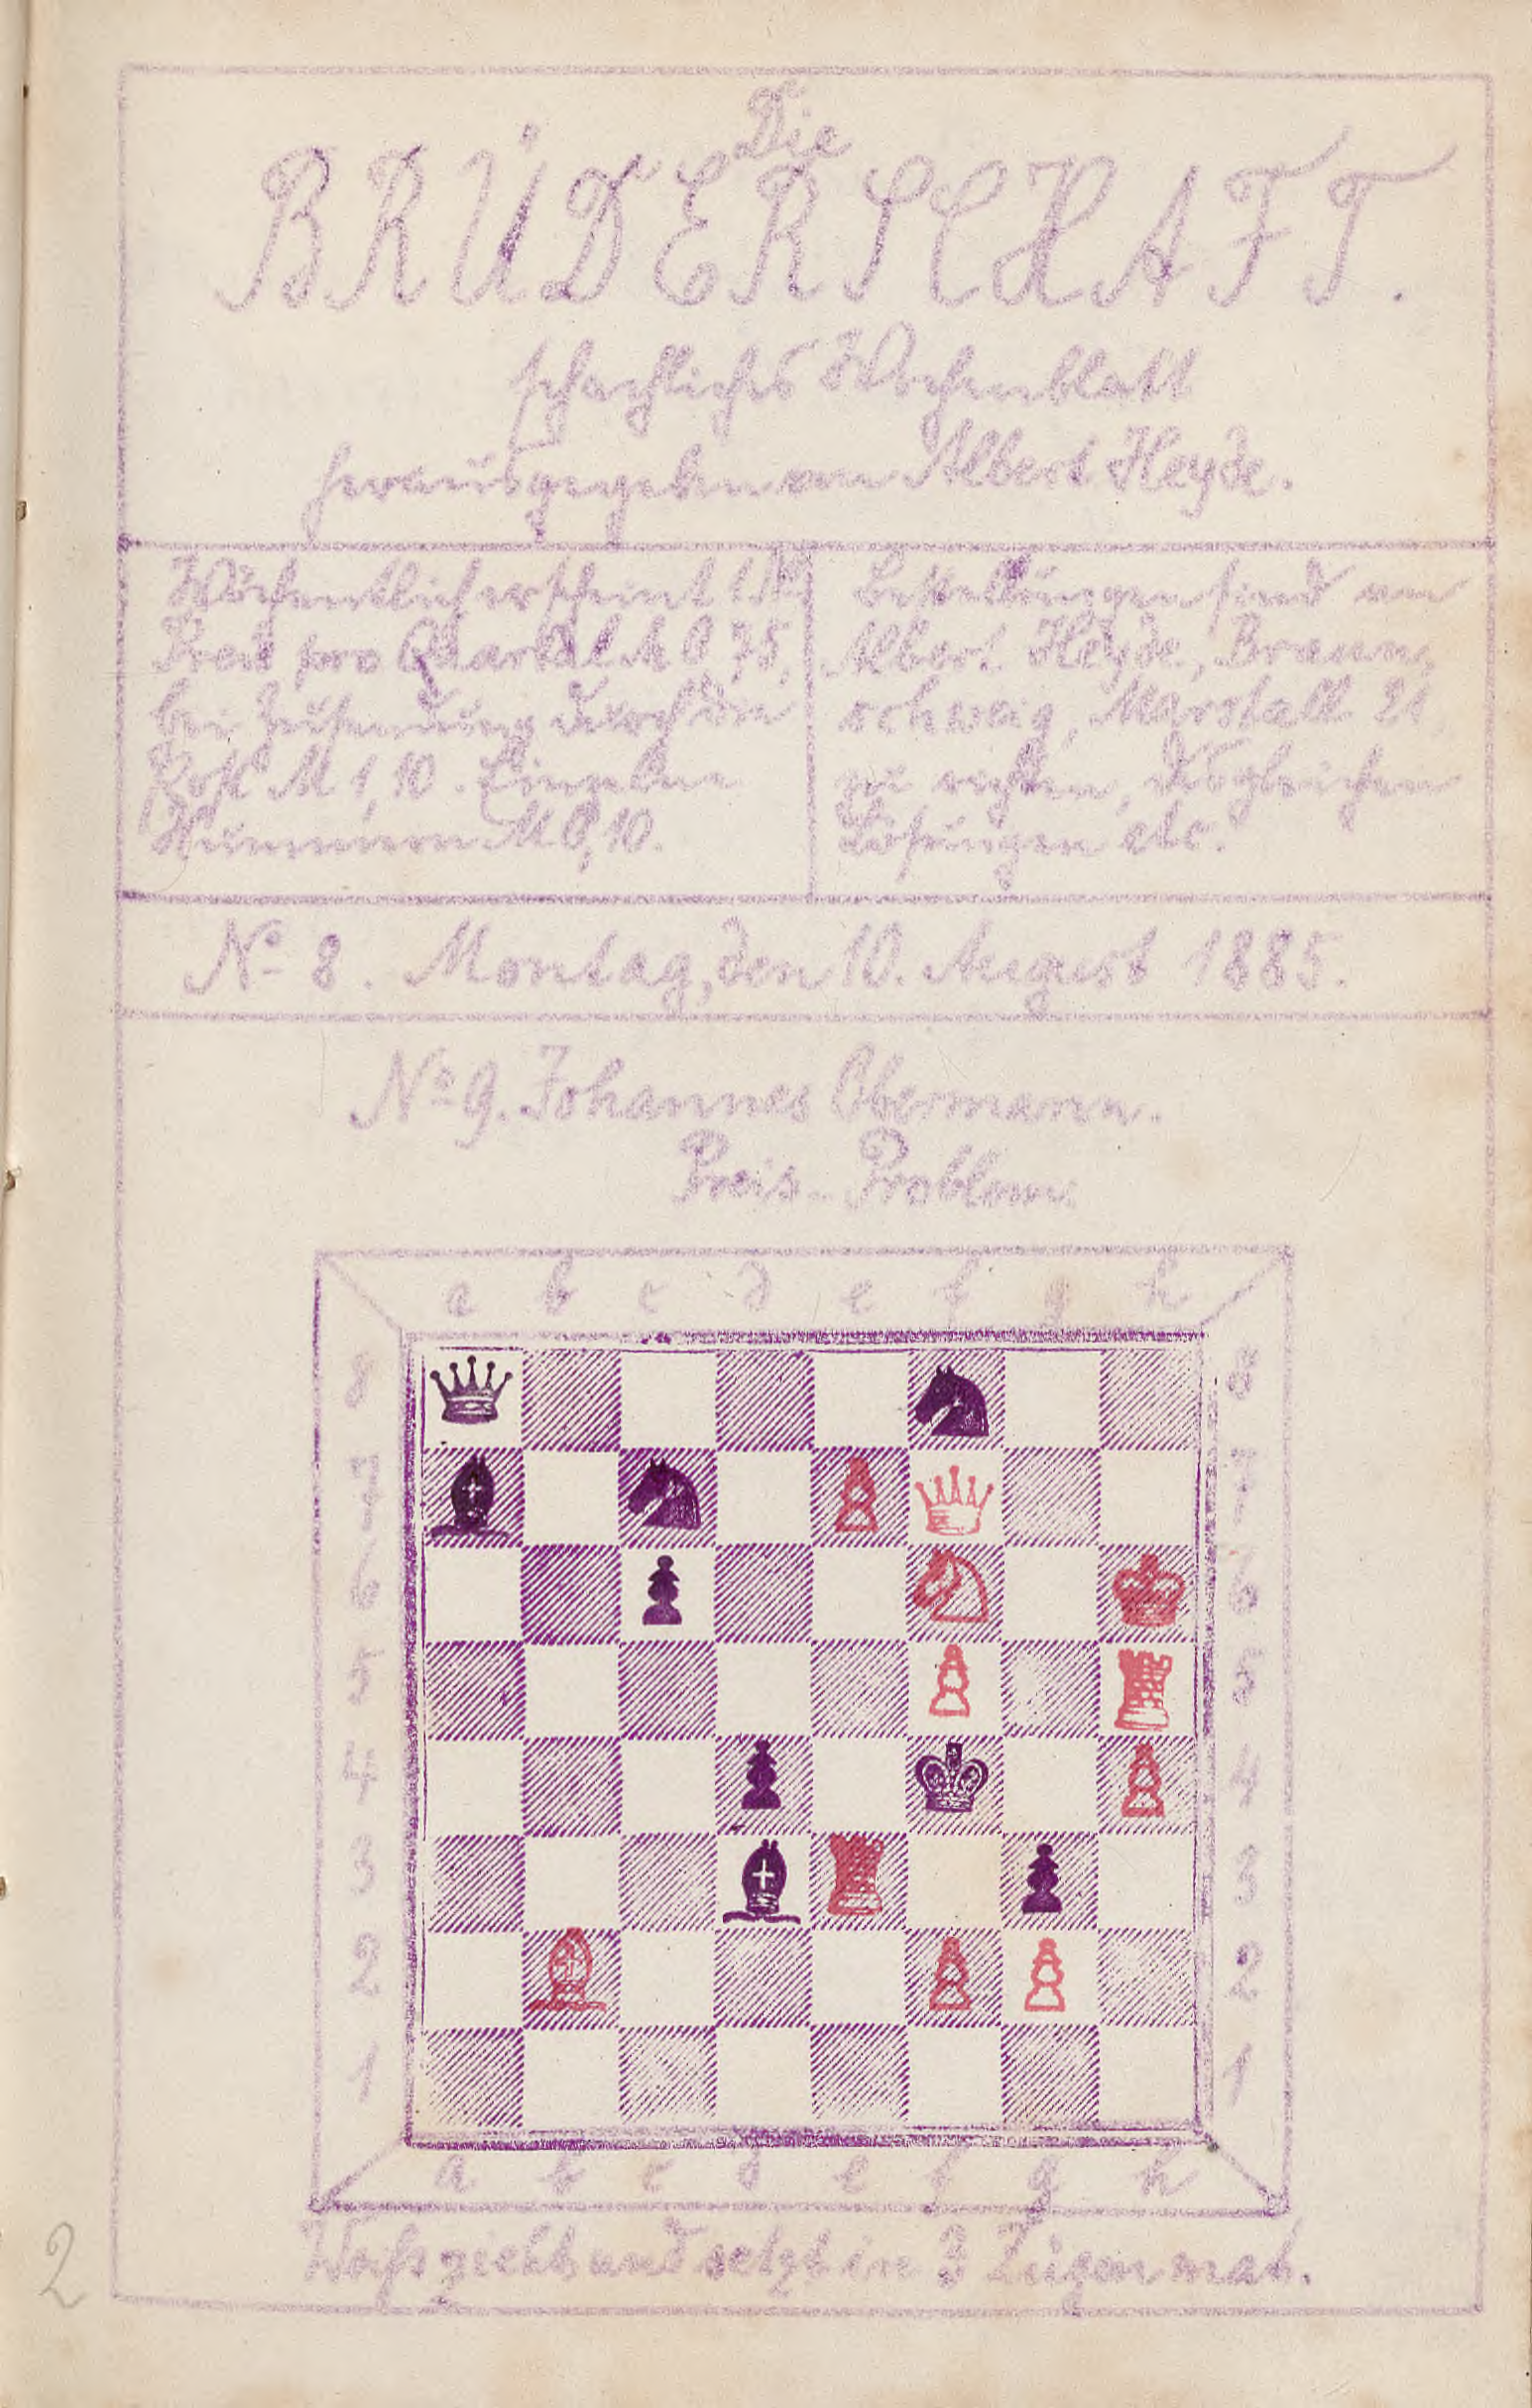 Die
BRÜDERSCHAFT.
schachliches Wochenblatt
herausgegeben von Albert Heyde.
Wöchentlich erscheint 1 No
Preis pro Quartal M 0,75,
bei Zusendung durch die
Post M 1,10. Einzelne
Nummern M 0,10.
Bestellungen sind an
Albert Heyde, Braun-
schweig, Marstall 21
zu richten, desgleichen
Lösungen etc.
No 8. Montag, den 10. August 1885.
No 9. Johannes Obermann.
Preis-Problem.
a b c d e f g h
8 8
7 7
6 6
5 5
4 4
3 3
2 2
1 1
a b c d e f g h
Weiss zieht und setzt in 3 Zügen mat.
2